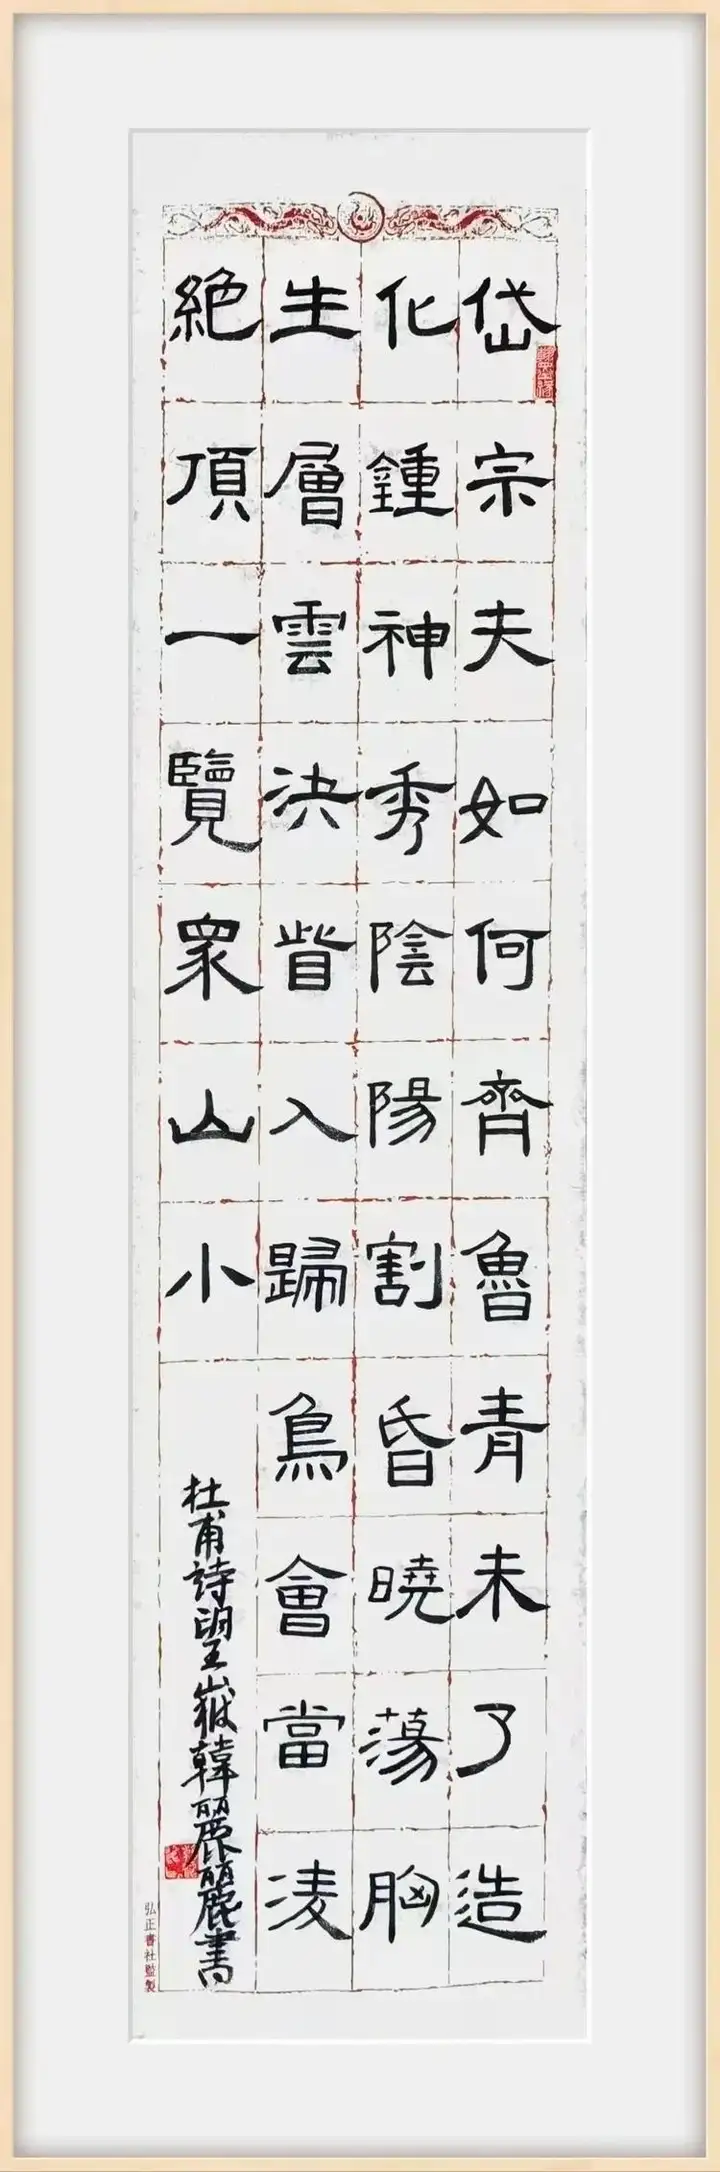 岱宗夫如何齊魯青未了造
化鍾神秀陰陽割昏曉蕩胸
生層雲決眥入歸鳥會當凌
絕頂一覽眾山小
杜甫詩望嶽韓麗麗書
弘正書社監製